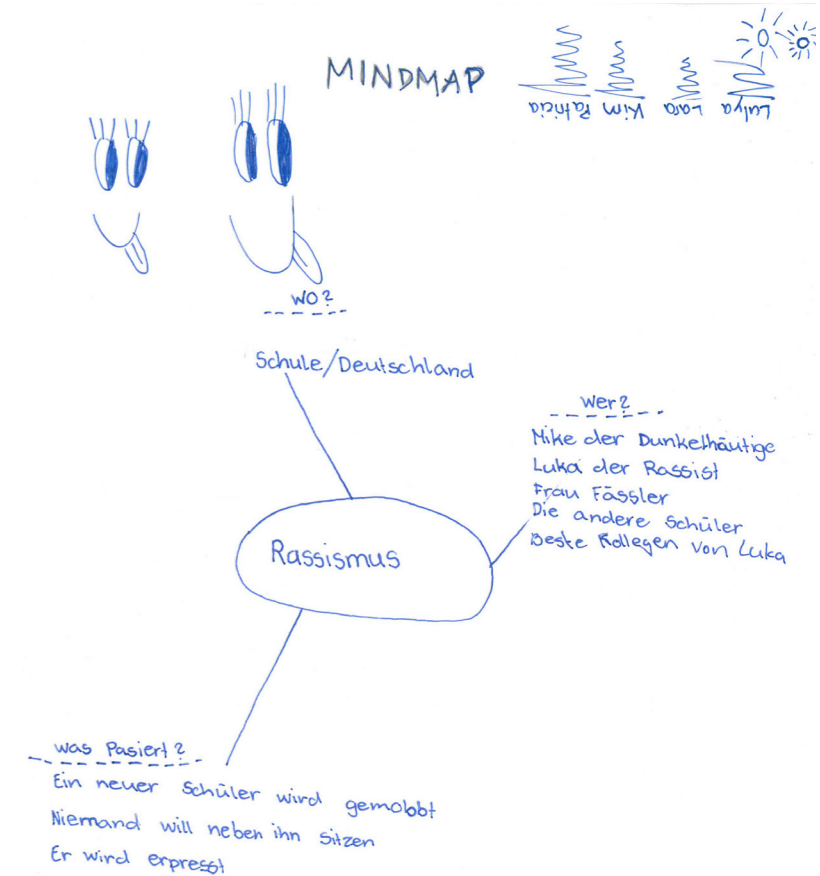 MINDMAP
Patricia Kim Lara Lulya
WO?
Schule/Deutschland
Wer?
Mike der Dunkelhäutige
Luka der Rassist
Frau Fässler
Die andere Schüler
Beste Kollegen von Luka
Rassismus
was Pasiert?
Ein neuer Schüler wird gemobbt
Niemand will neben ihn sitzen
Er wird erpresst